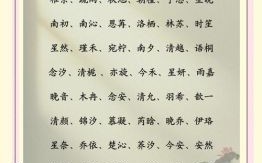 南初、南沁、恩苒、洛栖、林苏、时笙
星然、瑾禾、宛柠、南夕、清越、语桐
念汐、清栀、亦旋、今禾、星妍、雨嘉
晚音、木冉、念安、清九、羽希、歆一
清颜、锦汐、慕凝、芮晗、晚乔、伊珞
星奈、乔依、楚沁、荞汐、今安、安然